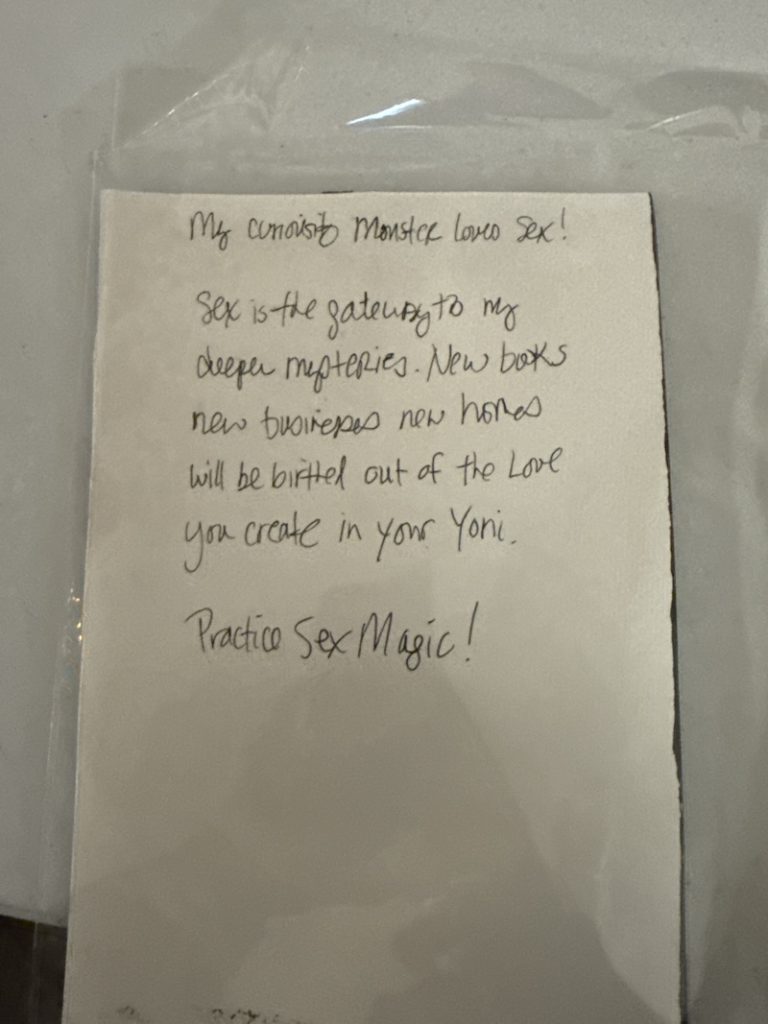 My curiosity Monster Loves Sex!
Sex is the gateway to my
deeper mysteries. New books
new businesses new homes
will be birthed out of the Love
you create in your Yoni.
Practice Sex Magic!